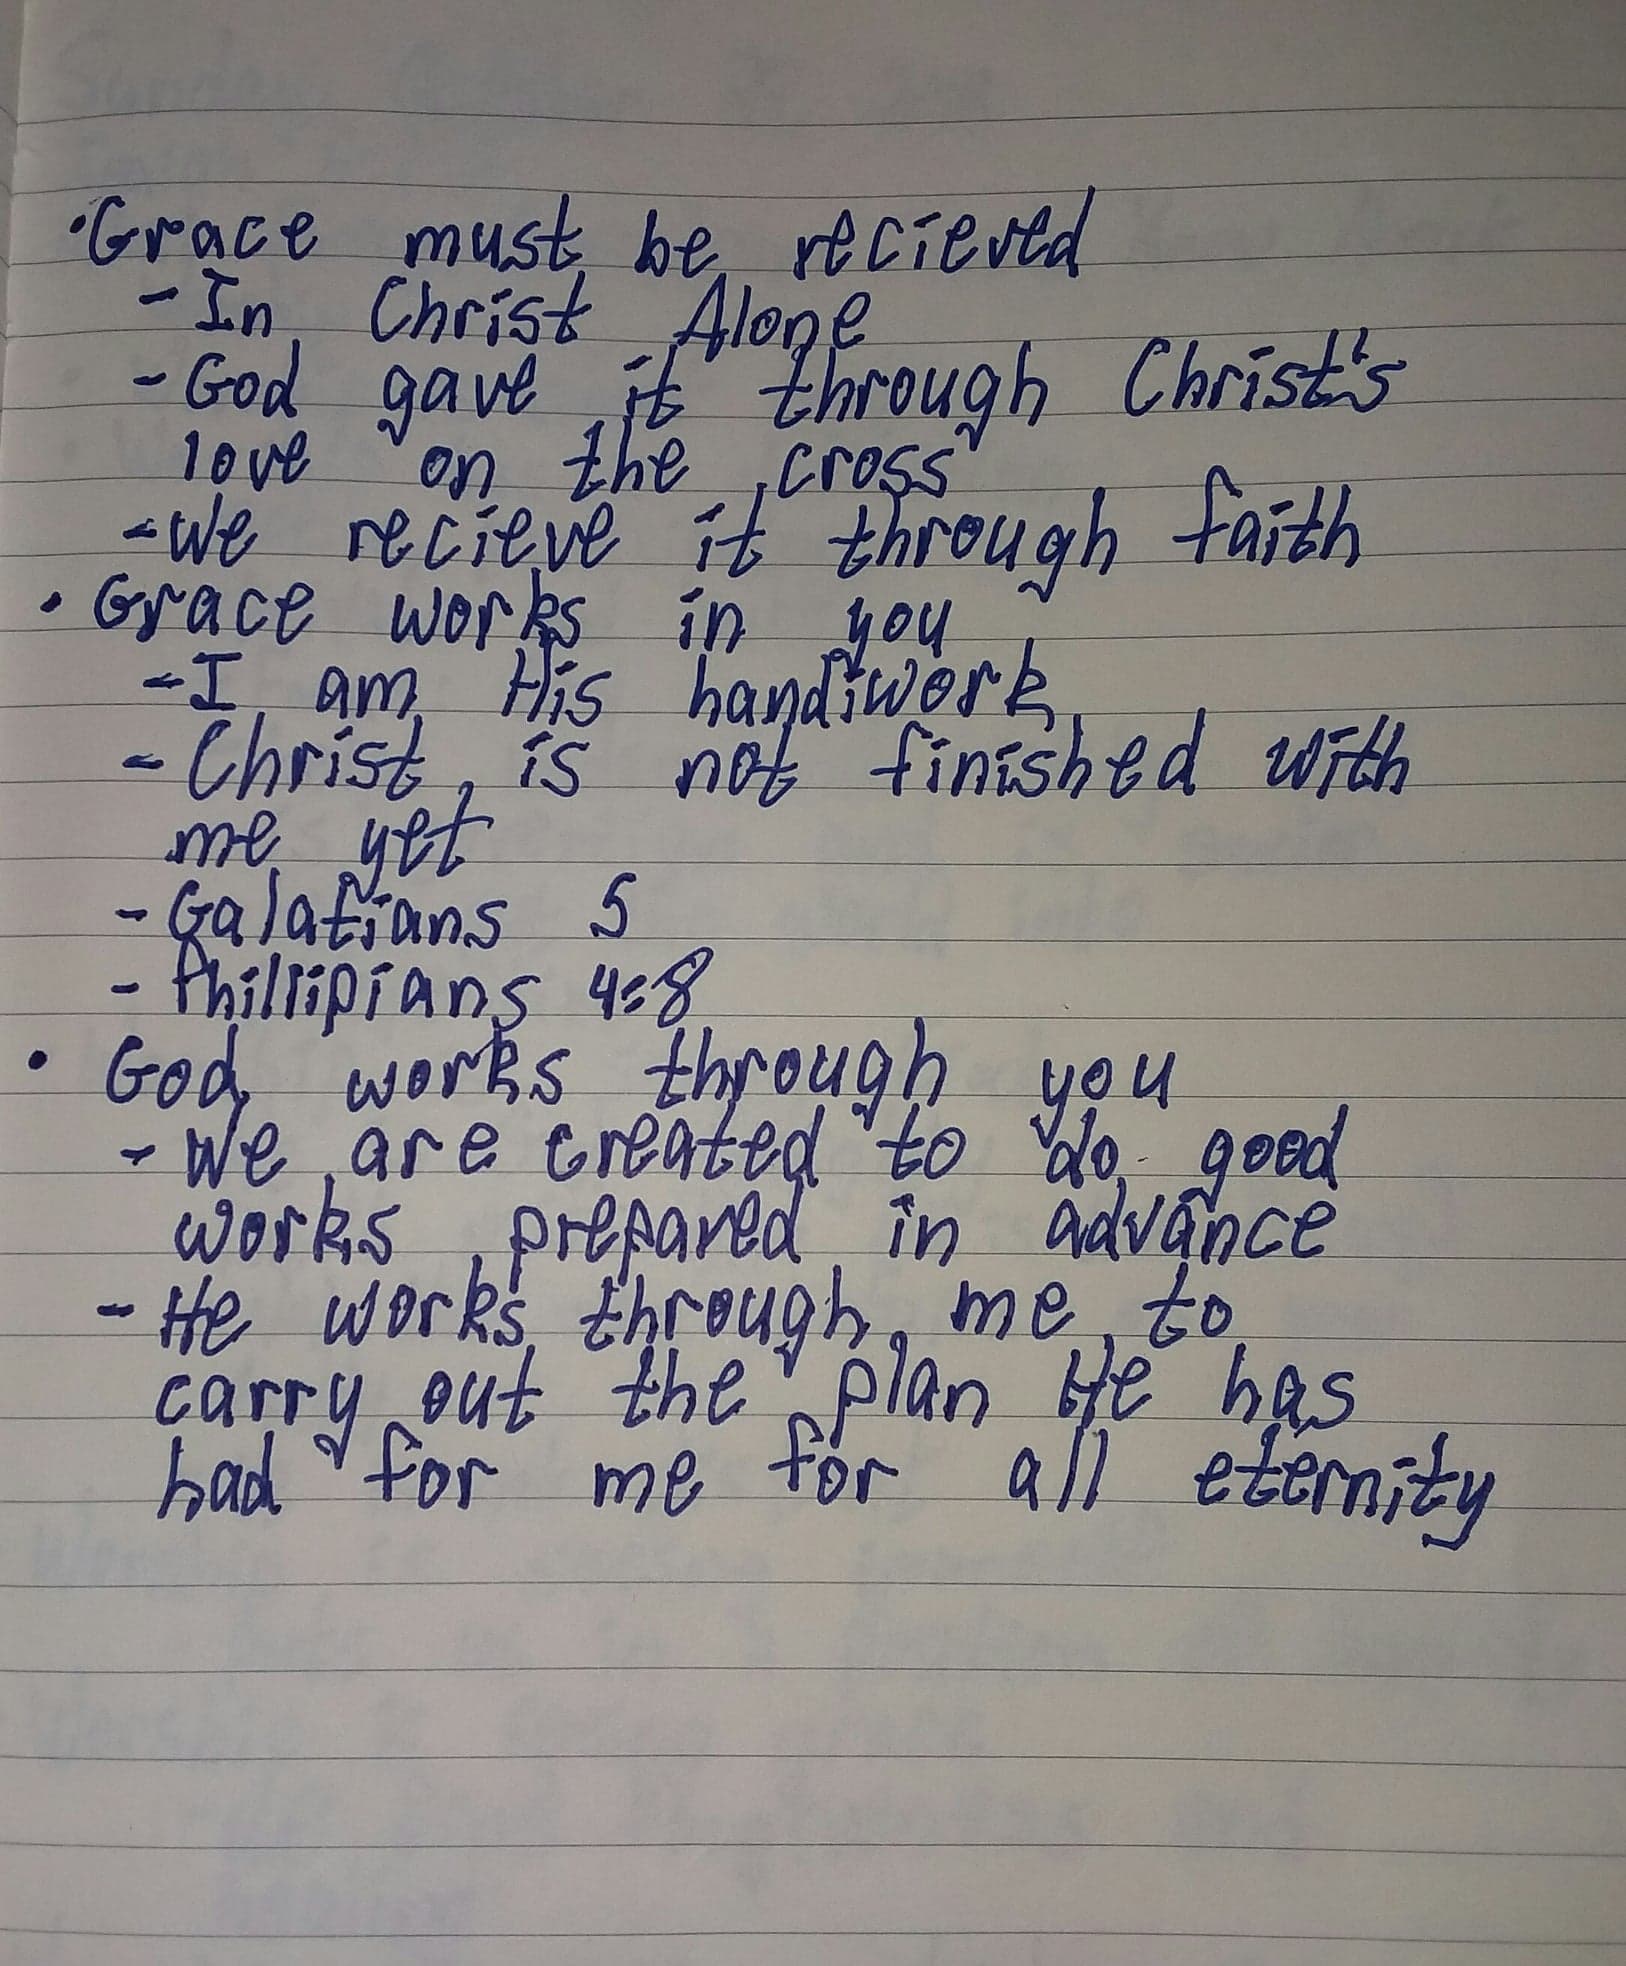 • Grace must be recieved
- In Christ Alone
- God gave it through Christ's
love on the cross
- We recieve it through faith
• Grace works in you
- I am His handiwork
- Christ is not finished with
me yet
- Galatians 5
- Phillipians 4:8
• God works through you
- We are created to do good
works prepared in advance
- He works through me to
carry out the plan He has
had for me for all eternity